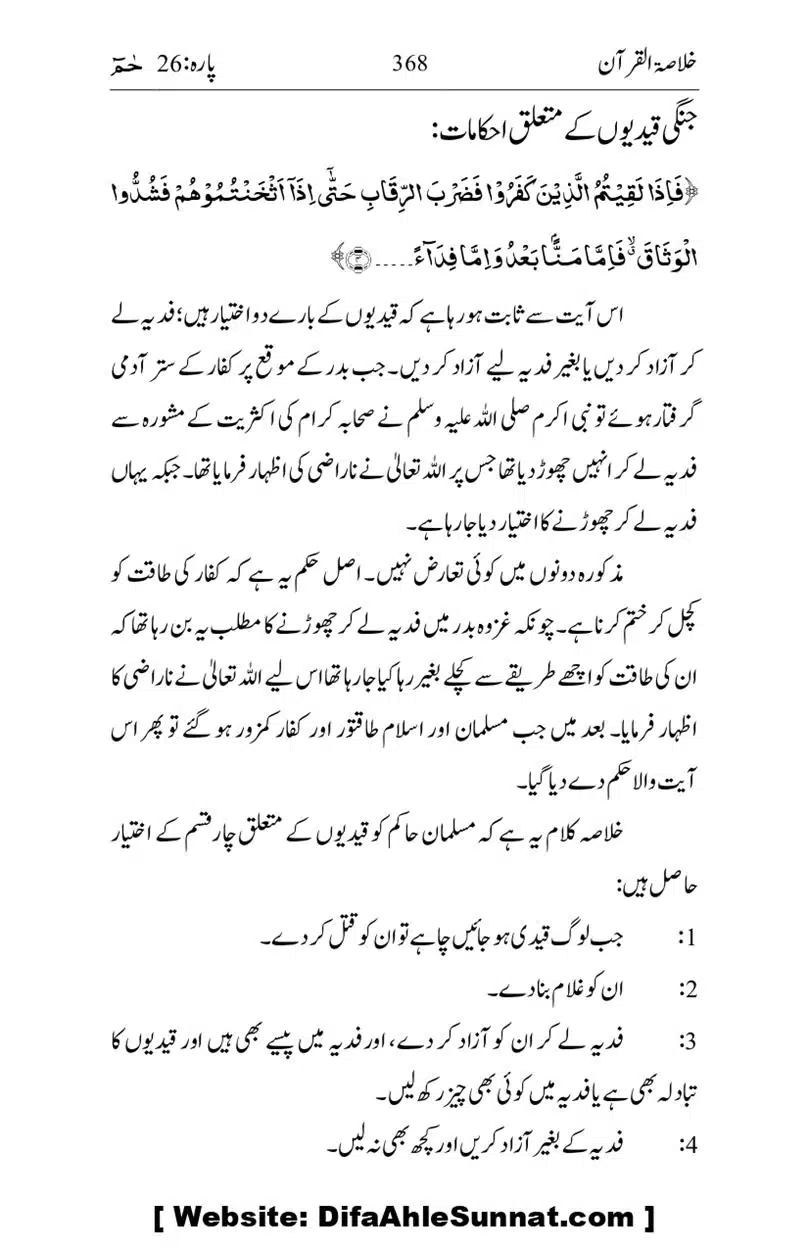 خلاصۃ القرآن 368 پارہ:26 حٰمٓ
جنگی قیدیوں کے متعلق احکامات:
﴿فَاِذَا لَقِیْتُمُ الَّذِیْنَ کَفَرُوْا فَضَرْبَ الرِّقَابِ حَتّٰۤی اِذَاۤ اَثْخَنْتُمُوْهُمْ فَشُدُّوا
الْوَثَاقَ ۙ فَاِمَّا مَنًّۢا بَعْدُ وَ اِمَّا فِدَآءً.....﴿۴﴾﴾
اس آیت سے ثابت ہو رہا ہے کہ قیدیوں کے بارے دو اختیار ہیں؛ فدیہ لے
کر آزاد کر دیں یا بغیر فدیہ لیے آزاد کر دیں۔ جب بدر کے موقع پر کفار کے ستر آدمی
گرفتار ہوئے تو نبی اکرم صلی اللہ علیہ وسلم نے صحابہ کرام کی اکثریت کے مشورہ سے
فدیہ لے کر انہیں چھوڑ دیا تھا جس پر اللہ تعالیٰ نے ناراضی کی اظہار فرمایا تھا۔ جبکہ یہاں
فدیہ لے کر چھوڑنے کا اختیار دیا جا رہا ہے۔
مذکورہ دونوں میں کوئی تعارض نہیں۔ اصل حکم یہ ہے کہ کفار کی طاقت کو
کچل کر ختم کرنا ہے۔ چونکہ غزوہ بدر میں فدیہ لے کر چھوڑنے کا مطلب یہ بن رہا تھا کہ
ان کی طاقت کو اچھے طریقے سے کچلے بغیر رہا کیا جا رہا تھا اس لیے اللہ تعالیٰ نے ناراضی کا
اظہار فرمایا۔ بعد میں جب مسلمان اور اسلام طاقتور اور کفار کمزور ہو گئے تو پھر اس
آیت والا حکم دے دیا گیا۔
خلاصہ کلام یہ ہے کہ مسلمان حاکم کو قیدیوں کے متعلق چار قسم کے اختیار
حاصل ہیں:
1: جب لوگ قیدی ہو جائیں چاہے تو ان کو قتل کر دے۔
2: ان کو غلام بنا دے۔
3: فدیہ لے کر ان کو آزاد کر دے، اور فدیہ میں پیسے بھی ہیں اور قیدیوں کا
تبادلہ بھی ہے یا فدیہ میں کوئی بھی چیز رکھ لیں۔
4: فدیہ کے بغیر آزاد کریں اور کچھ بھی نہ لیں۔
[ Website: DifaAhleSunnat.com ]